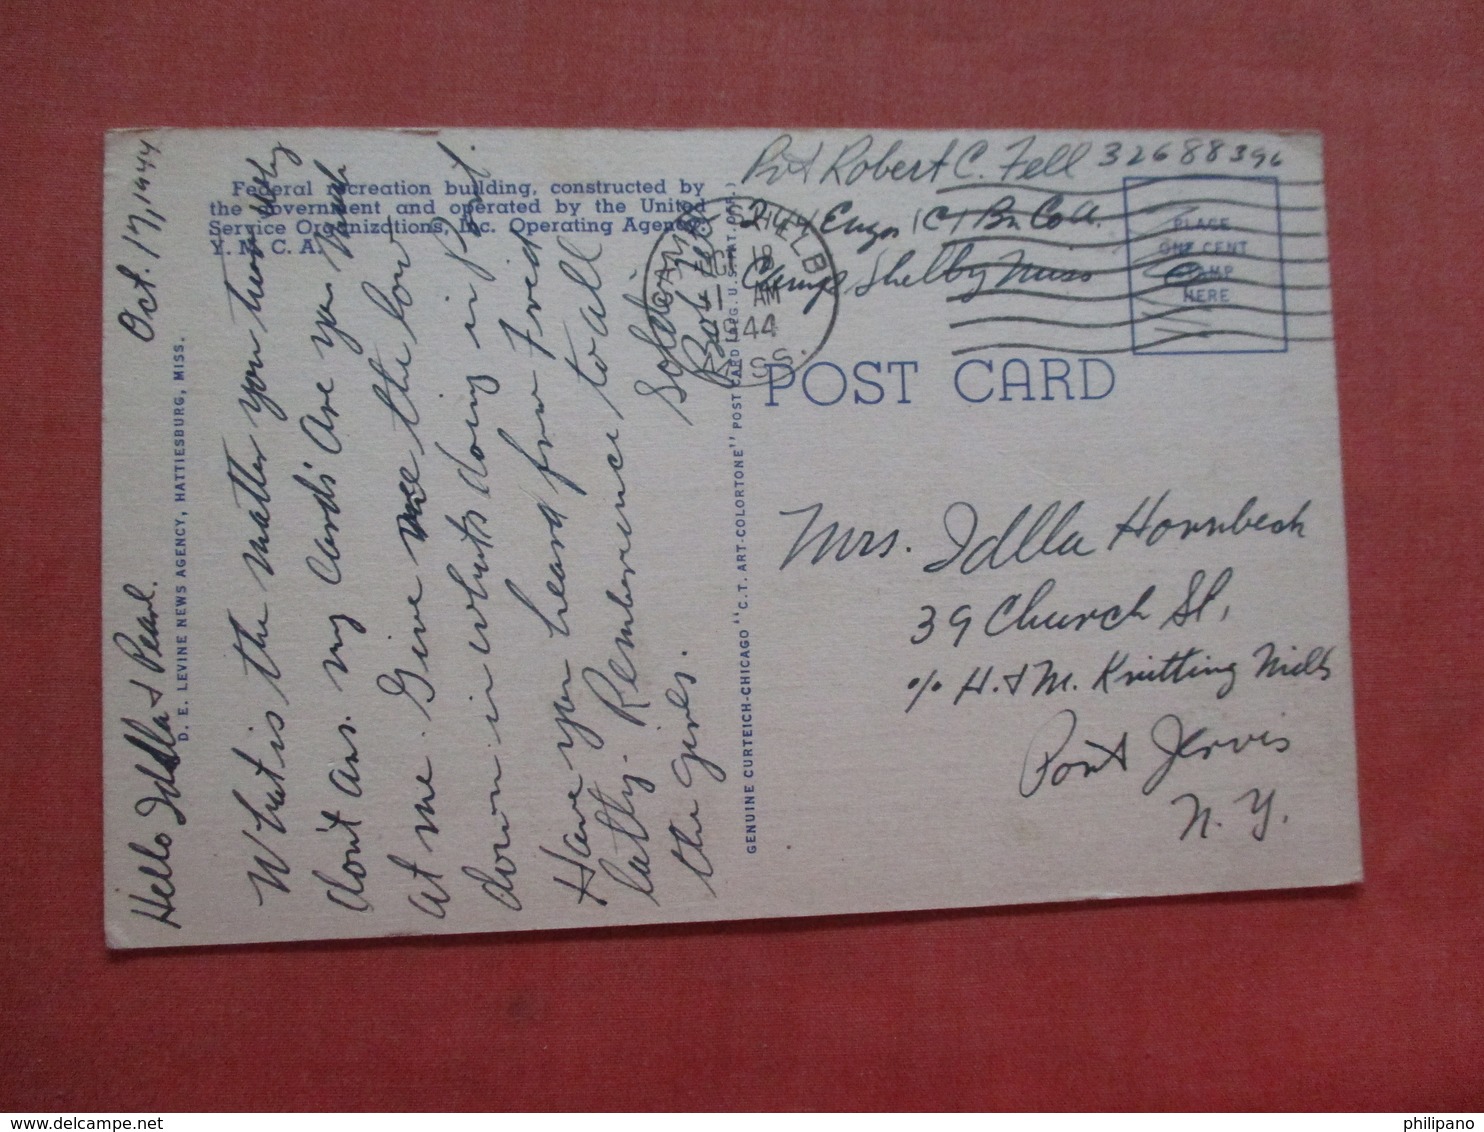 Federal recreation building, constructed by
the government and operated by the United
Service Organizations, Inc. Operating Agency,
Y. M. C. A.
D. E. LEVINE NEWS AGENCY, HATTIESBURG, MISS.
Oct. 17, 1944
Hello Idella & Pearl.
What is the matter you
don't ans. my cards' Are you
at me. Give me the low
down in whats doing in Port.
Have you heard from Fred
lately. Rememberence to all
the girls.
Soldier
Bob Fell
GENUINE CURTEICH-CHICAGO "C.T. ART-COLORTONE" POST CARD (REG. U.S. PAT. OFF.)
Pvt Robert C. Fell 32688396
Engrs (C) Bn Co A.
Camp Shelby Miss
CAMP SHELBY
OCT 18
11 AM
1944
MISS.
PLACE
ONE CENT
STAMP
HERE
POST CARD
Mrs. Idlla Hornbeck
39 Church St,
% H. & M. Knitting Mills
Port Jervis
N. Y.
philipano